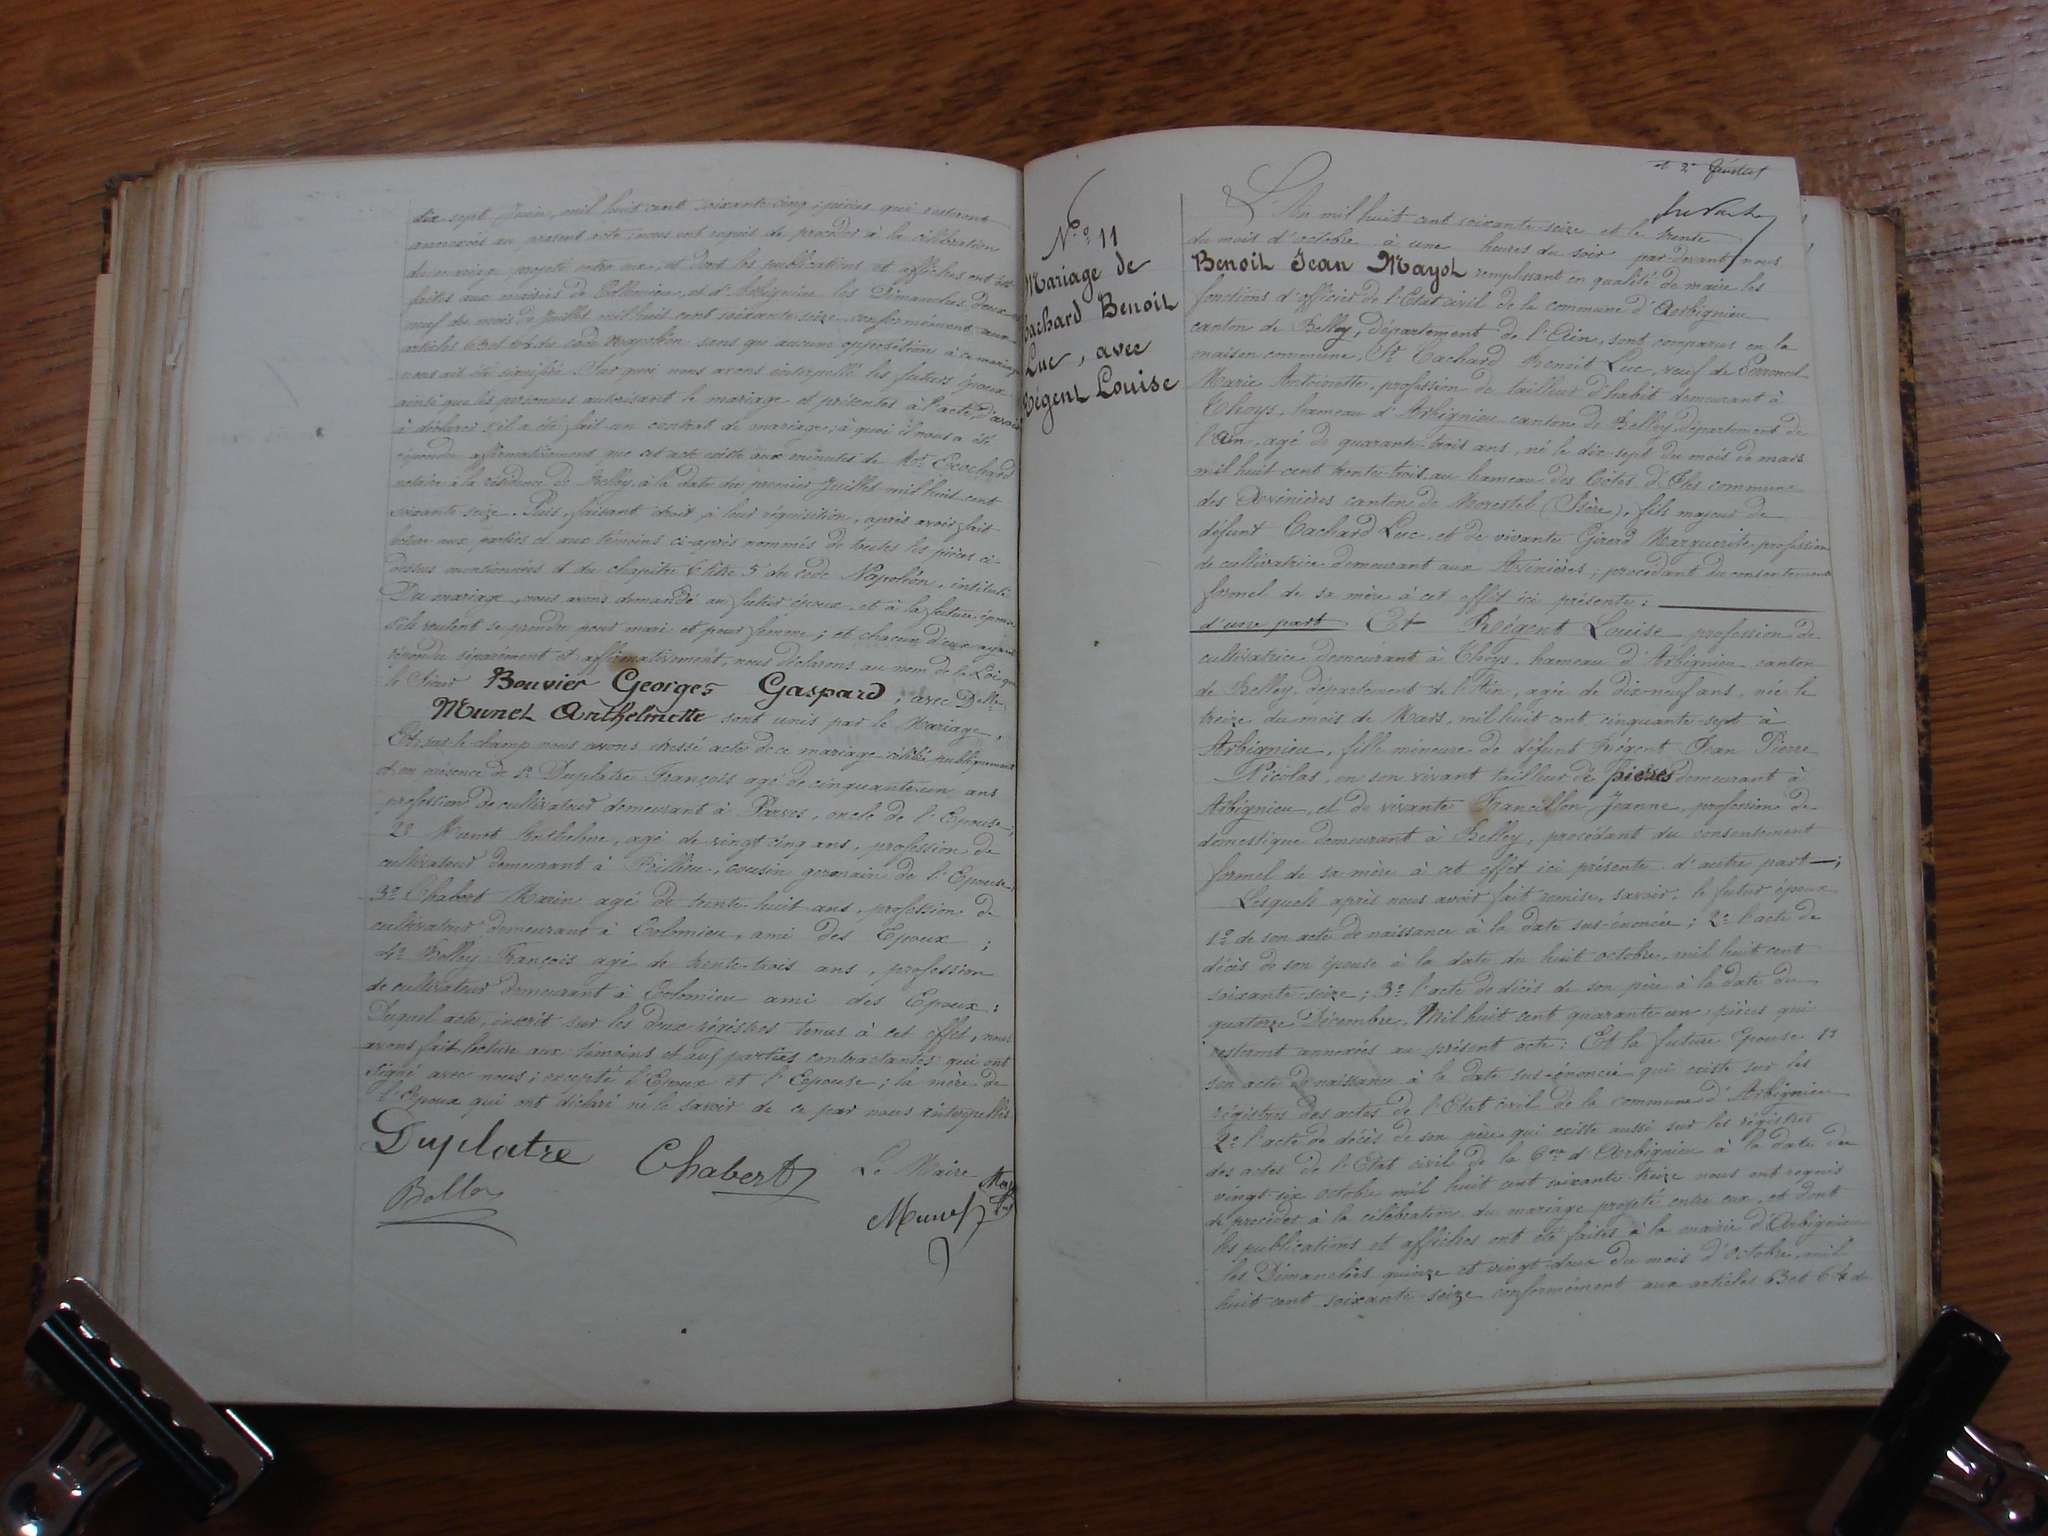 dix sept Juin, mil huit cent soixante cinq; pièces qui resteront
annexées au présent acte; nous ont requis de procéder à la célébration
du mariage projeté entre eux, et dont les publications et affiches ont été
faites aux mairies de Collomieu, et d'Arbignieu les Dimanches deux et
neuf du mois de Juillet mil huit cent soixante seize conformément aux
articles 63 et 64 du code Napoléon sans que aucune opposition à ce mariage
nous ait été signifiée. Sur quoi nous avons interpellé les futurs époux
ainsi que les personnes autorisant le mariage et présentes à l'acte, d'avoir
à déclarer s'il a été fait un contrat de mariage; à quoi il nous a été
répondu affirmativement que cet acte existe aux minutes de Mre
notaire à la résidence de Belley, à la date du premier Juillet mil huit cent
soixante seize. Puis, faisant droit à leur réquisition, après avoir fait
lecture aux parties et aux témoins ci-après nommés de toutes les pièces ci-
dessus mentionnées et du chapitre 6 titre 5 du code Napoléon, intitulé
Du mariage, nous avons demandé au futur époux et à la future épouse
s'ils veulent se prendre pour mari et pour femme; et chacun d'eux ayant
répondu séparément et affirmativement, nous déclarons au nom de la Loi que
le Sieur Bouvier Georges Gaspard, avec Delle
Munet Anthelmette sont unis par le Mariage.
Et sur le champ nous avons dressé acte de ce mariage célébré publiquement
et en présence de 1º Duplatre François agé de cinquante un ans
profession de cultivateur demeurant à Parves, oncle de l'Epouse,
2º Munet Anthelme, agé de vingt cinq ans, profession de
cultivateur demeurant à Rillieu, cousin germain de l'Epouse,
3º Chabert Marin agé de trente-huit ans, profession de
cultivateur demeurant à Colomieu, ami des Epoux;
4º Bolley François agé de trente-trois ans, profession
de cultivateur demeurant à Colomieu ami des Epoux:
Duquel acte, inscrit sur les deux régistres tenus à cet effet, nous
avons fait lecture aux témoins et aux parties contractantes qui ont
signé avec nous; excepté l'Epoux et l'Epouse; la mère de
l'Epoux qui ont déclaré ne le savoir de ce par nous interpellés
Duplatre Chabert Le Maire
Munet
Nº 11
Mariage de
Cachard Benoit
Luc, avec
Régent Louise
L'An mil huit cent soixante seize et le trente
du mois d'octobre à une heures du soir par-devant nous
Benoit Jean Mayot remplissant en qualité de maire les
fonctions d'officier de l'Etat civil de la commune d'Arbignieu
canton de Belley, département de l'Ain, sont comparus en la
maison commune, Sr Cachard Benoit Luc, veuf de Perronet
Marie Antoinette, profession de tailleur d'habit demeurant à
Thoys, hameau d'Arbignieu canton de Belley département de
l'Ain, agé de quarante-trois ans, né le dix-sept du mois de mars
mil huit cent trente-trois au hameau des Cotes d' commune
des Avinières canton de Morestel (Isère), fils majeur de
défunt Cachard Luc, et de vivante Girerd Marguerite profession
de cultivatrice demeurant aux Avinières; procédant du consentement
formel de sa mère à cet effet ici présente:
d'une part Et Régent Louise profession de
cultivatrice demeurant à Thoys, hameau d'Arbignieu canton
de Belley, département de l'Ain, agée de dix-neuf ans, née le
treize du mois de Mars, mil huit cent cinquante-sept à
Arbignieu, fille mineure de défunt Régent Jean Pierre
Nicolas, en son vivant tailleur de pierres demeurant à
Arbignieu, et de vivante Francillon Jeanne, profession de
domestique demeurant à Belley, procédant du consentement
formel de sa mère à cet effet ici présente d'autre part—;
Lesquels après nous avoir fait remise, savoir, le futur époux
1º de son acte de naissance à la date sus-énoncée; 2º l'acte de
décès de son épouse à la date du huit octobre, mil huit cent
soixante-seize; 3º l'acte de décès de son père à la date du
quatorze Décembre, Mil huit cent quarante-un, pièces qui
resteront annexées au présent acte: Et la future Epouse 1º
son acte de naissance à la date sus-énoncée qui existe sur les
régistres des actes de l'Etat civil de la commune d'Arbignieu
2º l'acte de décès de son père qui existe aussi sur les régistres
des actes de l'Etat civil de la Cne d'Arbignieu à la date du
vingt-six octobre mil huit cent soixante-treize nous ont requis
de procéder à la célébration du mariage projeté entre eux, et dont
les publications et affiches ont été faites à la mairie d'Arbignieu
les Dimanches quinze et vingt-deux du mois d'Octobre, mil
huit cent soixante-seize conformément aux articles 63 et 64 d